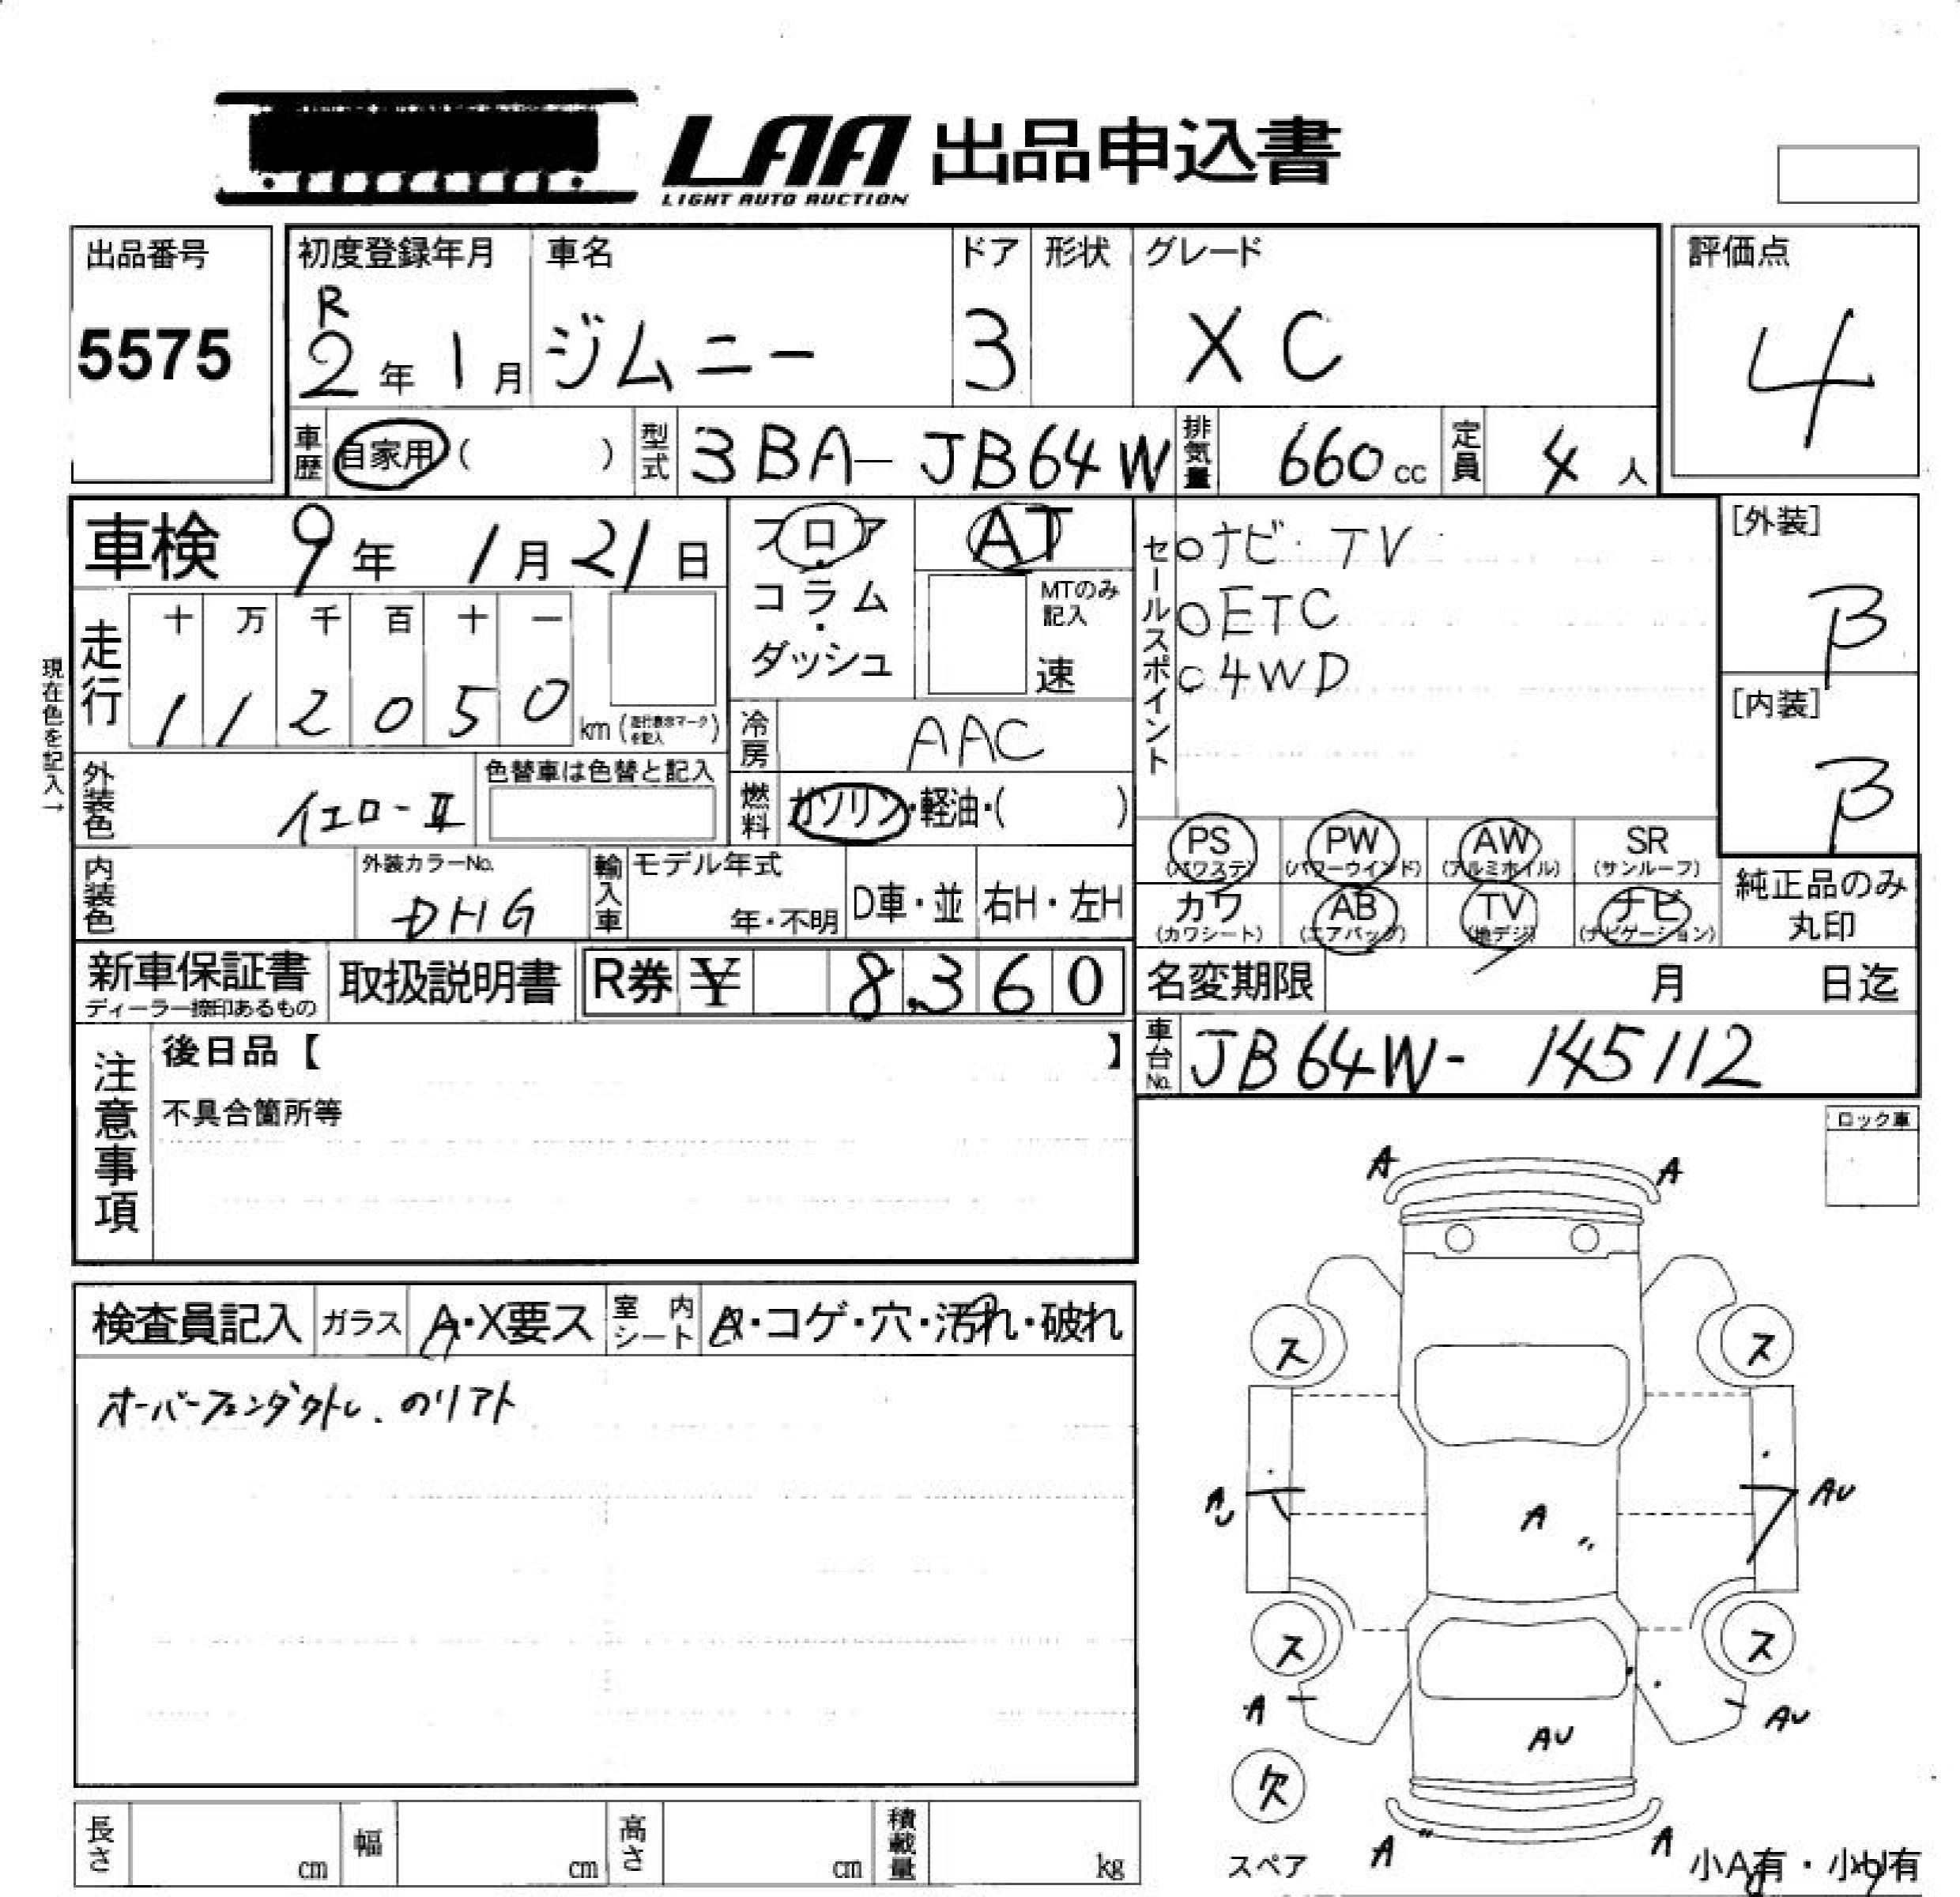 LAA 出品申込書
LIGHT AUTO AUCTION
出品番号
5575
初度登録年月
R
2年 1月
車名
ジムニー
ドア
3
形状
グレード
XC
評価点
4
車歴 自家用( )
型式 3BA-JB64W
排気量 660cc
定員 4人
車検 9年 1月21日
フロア・コラム・ダッシュ
AT
MTのみ記入
速
セールスポイント
○ナビ・TV
○ETC
○4WD
[外装]
β
[内装]
β
現在色を記入→
走行
十 万 千 百 十 一
1 1 2 0 5 0 km(走行表示マークを記入)
冷房 AAC
外装色 イエロ-Ⅱ
色替車は色替と記入
燃料 ガソリン・軽油・( )
PS (パワステ)
PW (パワーウインド)
AW (アルミホイル)
SR (サンルーフ)
カワ (カワシート)
AB (エアバッグ)
TV (地デジ)
ナビ (ナビゲーション)
純正品のみ丸印
内装色
外装カラーNo.
DHG
輸入車
モデル年式
年・不明
D車・並
右H・左H
新車保証書
ディーラー捺印あるもの
取扱説明書
R券 ¥ 8,360
名変期限 月 日迄
車台No. JB64W- 145112
注意事項
後日品【 】
不具合箇所等
ロック車
検査員記入
ガラス A・X要ス
室内シート A・コゲ・穴・汚れ・破れ
オーバーフェンダクトレ.のリアト
A A
ス ス
AU AU
A 〃
ス ス
A AU
AU
欠
スペア
A 〃 A
小A有・小U有
長さ cm
幅 cm
高さ cm
積載量 kg